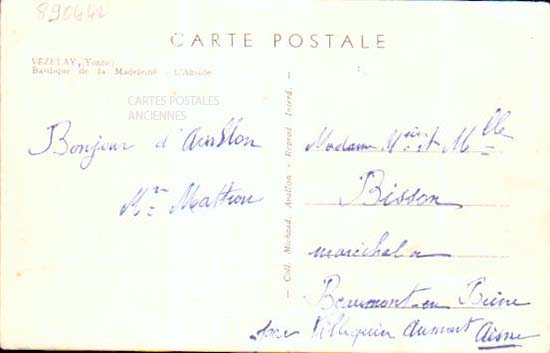 890442
CARTE POSTALE
VÉZELAY, (Yonne)
Basilique de la Madeleine - L'Abside
CARTES POSTALES
ANCIENNES
Bonjour d'Avallon
Mr Mattron
— Coll. Michaud, Avallon - Reprod. Interd. —
Madame Mr et Mlle
Bisson
maréchal a
Beaumont en Beine
par Villequier Aumont Aisne